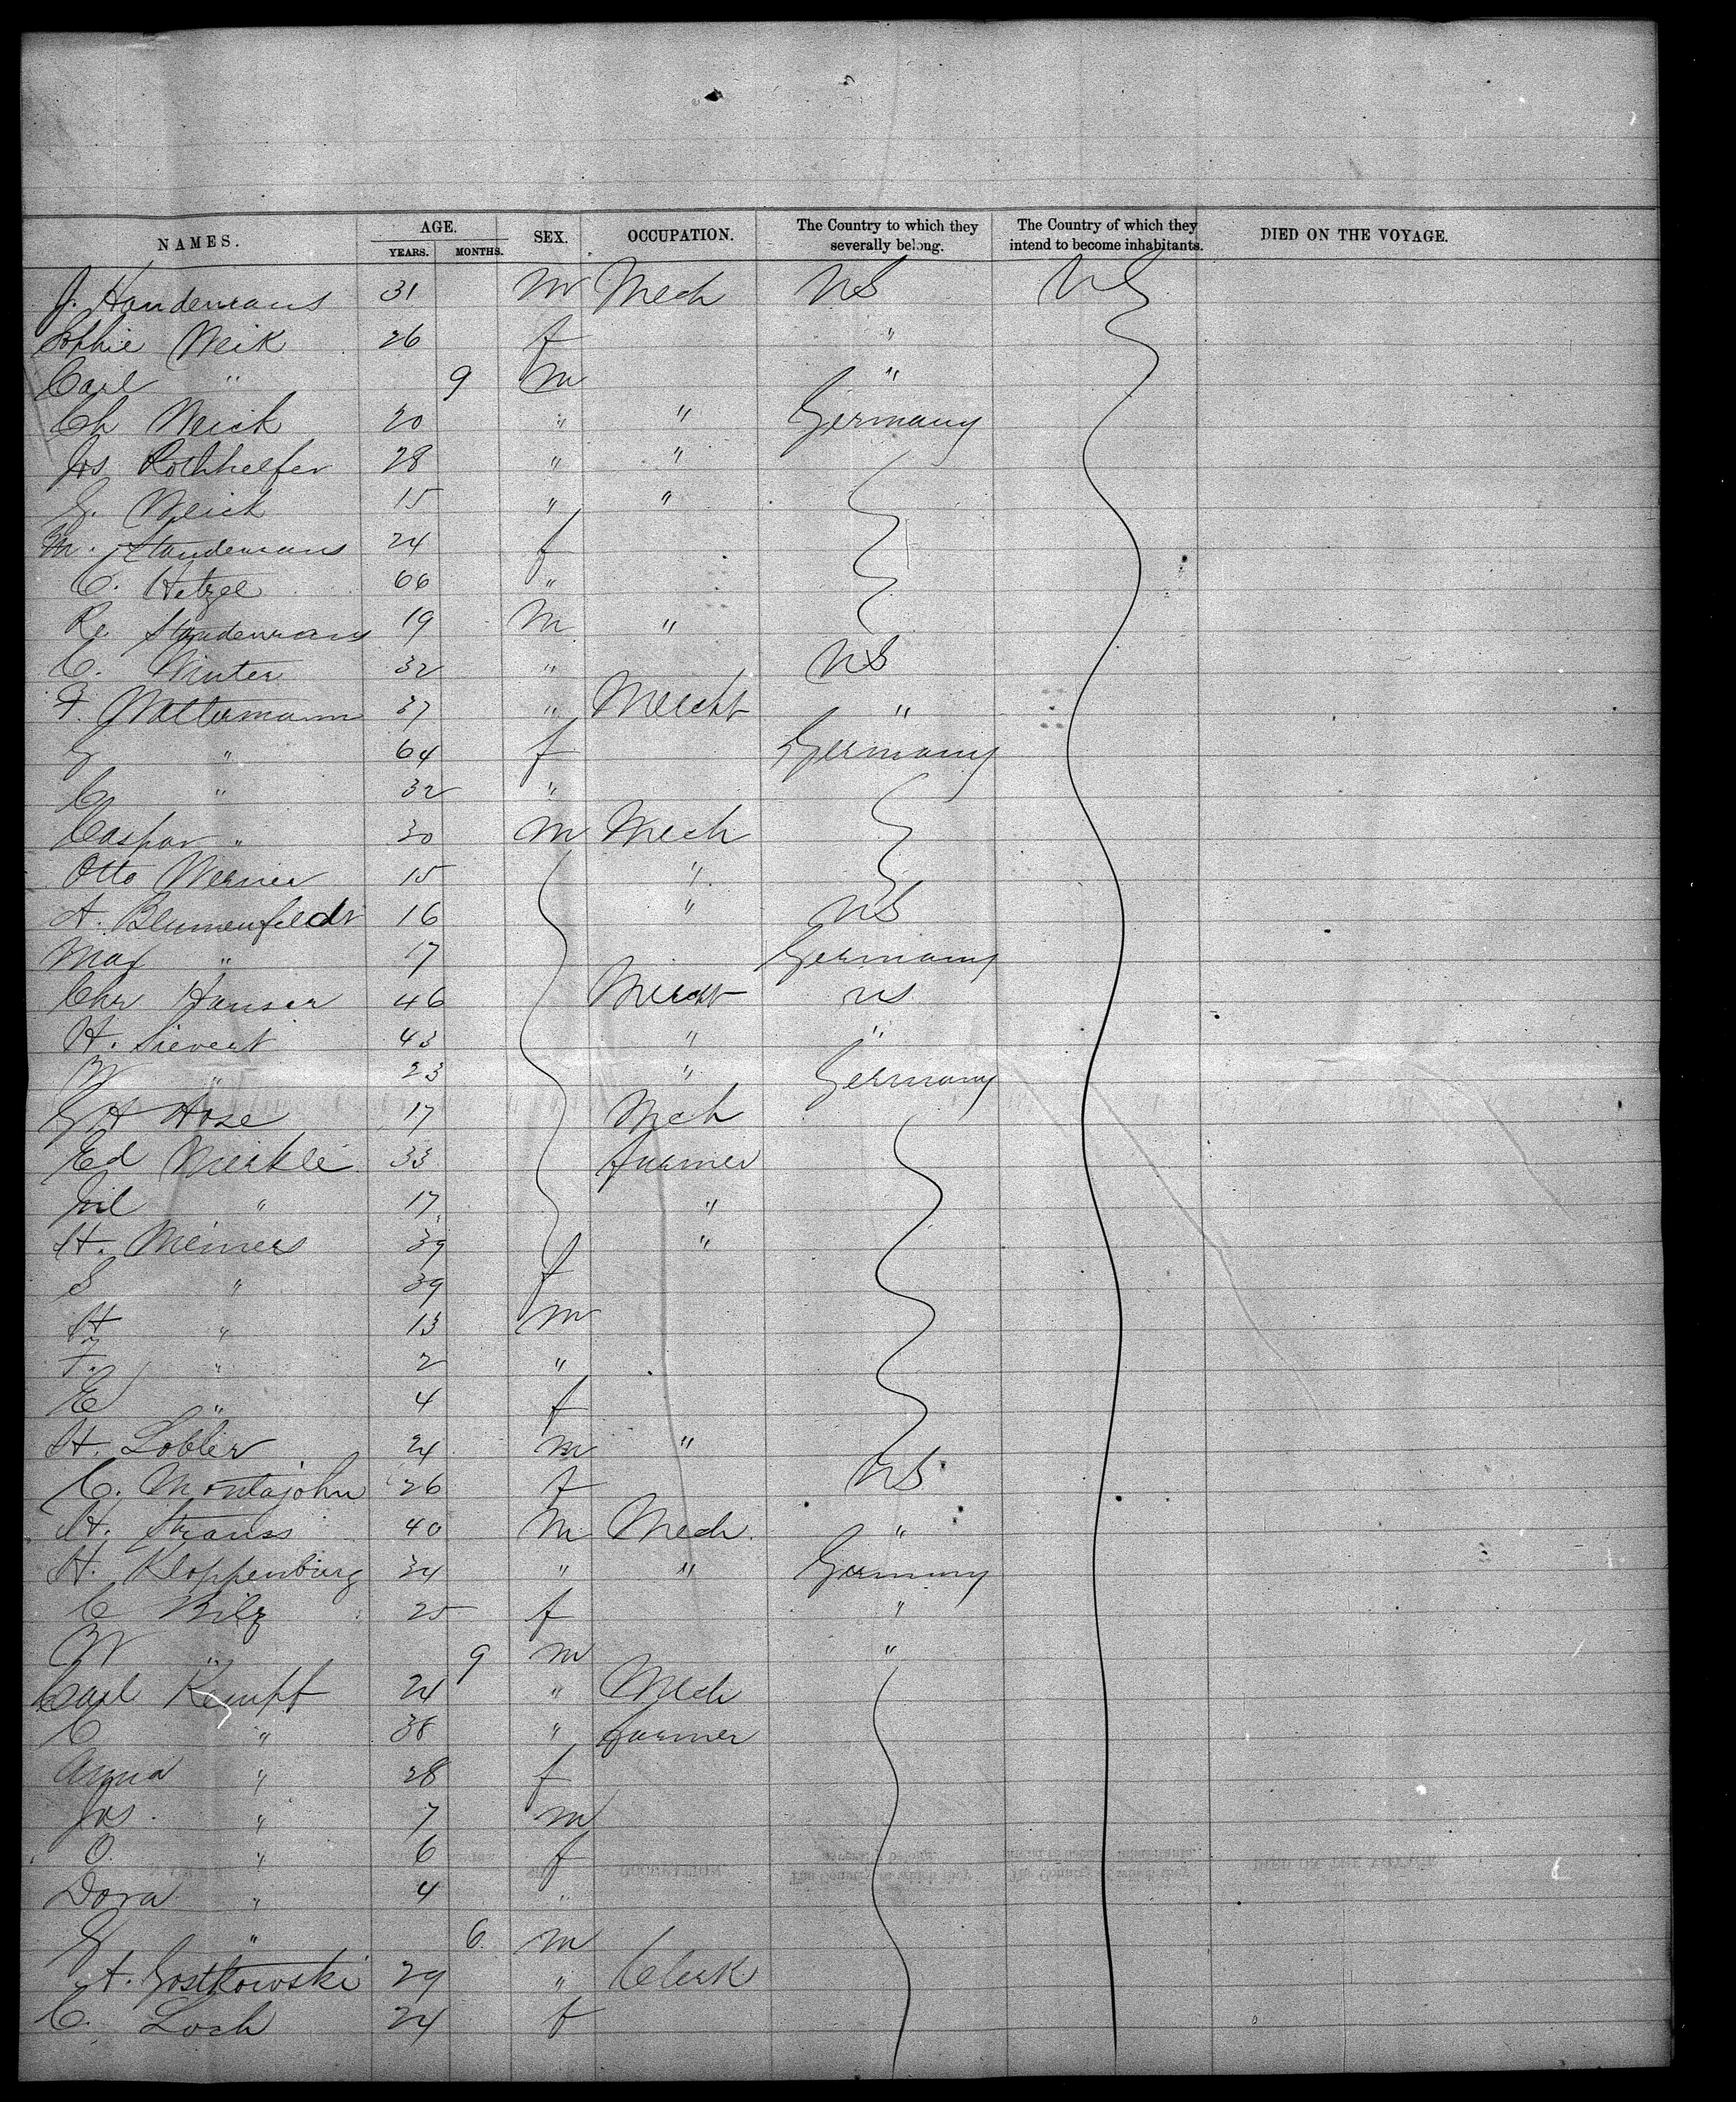 NAMES. AGE. YEARS. MONTHS. SEX. OCCUPATION. The Country to which they severally belong. The Country of which they intend to become inhabitants. DIED ON THE VOYAGE.
J. 31 m Mech US US
Sophie Meik 26 f "
Carl " 9 m "
Ch Meick 20 " " Germany
Jos Rothhelfer 28 " "
G. Meick 15 " "
M. 24 f
C. Hetzel 66 "
19 m "
C. Winter 32 " US
F. Waltermann 37 " Mercht "
G " 64 f Germany
C " 32 "
Caspar " 30 m Mech
Otto Werner 15 "
A. Blumenfeldt 16 " US
Max " 17 Germany
Chr Hansen 46 Mercht US
H. Sievert 43 " "
W " 23 " Germany
G H Hose 17 Mch
Ed Merkle 33 farmer
" 17 "
H. Meiners 39 "
S " 39 f
H " 13 m
F. " 2 "
E " 4 f
H. Lobler 24 m "
C. Montajohn 26 f US
H. Strauss 40 m Mech "
H. Kloppenburg 34 " " Germany
C Bilz 25 f "
W " 9 m "
Carl Kempf 24 " Mech
C " 38 " farmer
Anna " 28 f
Jos. " 7 m
O. " 6 f
Dora " 4 "
G " 6 m
A. Gostkowski 29 " Clerk
C. Loch 24 f